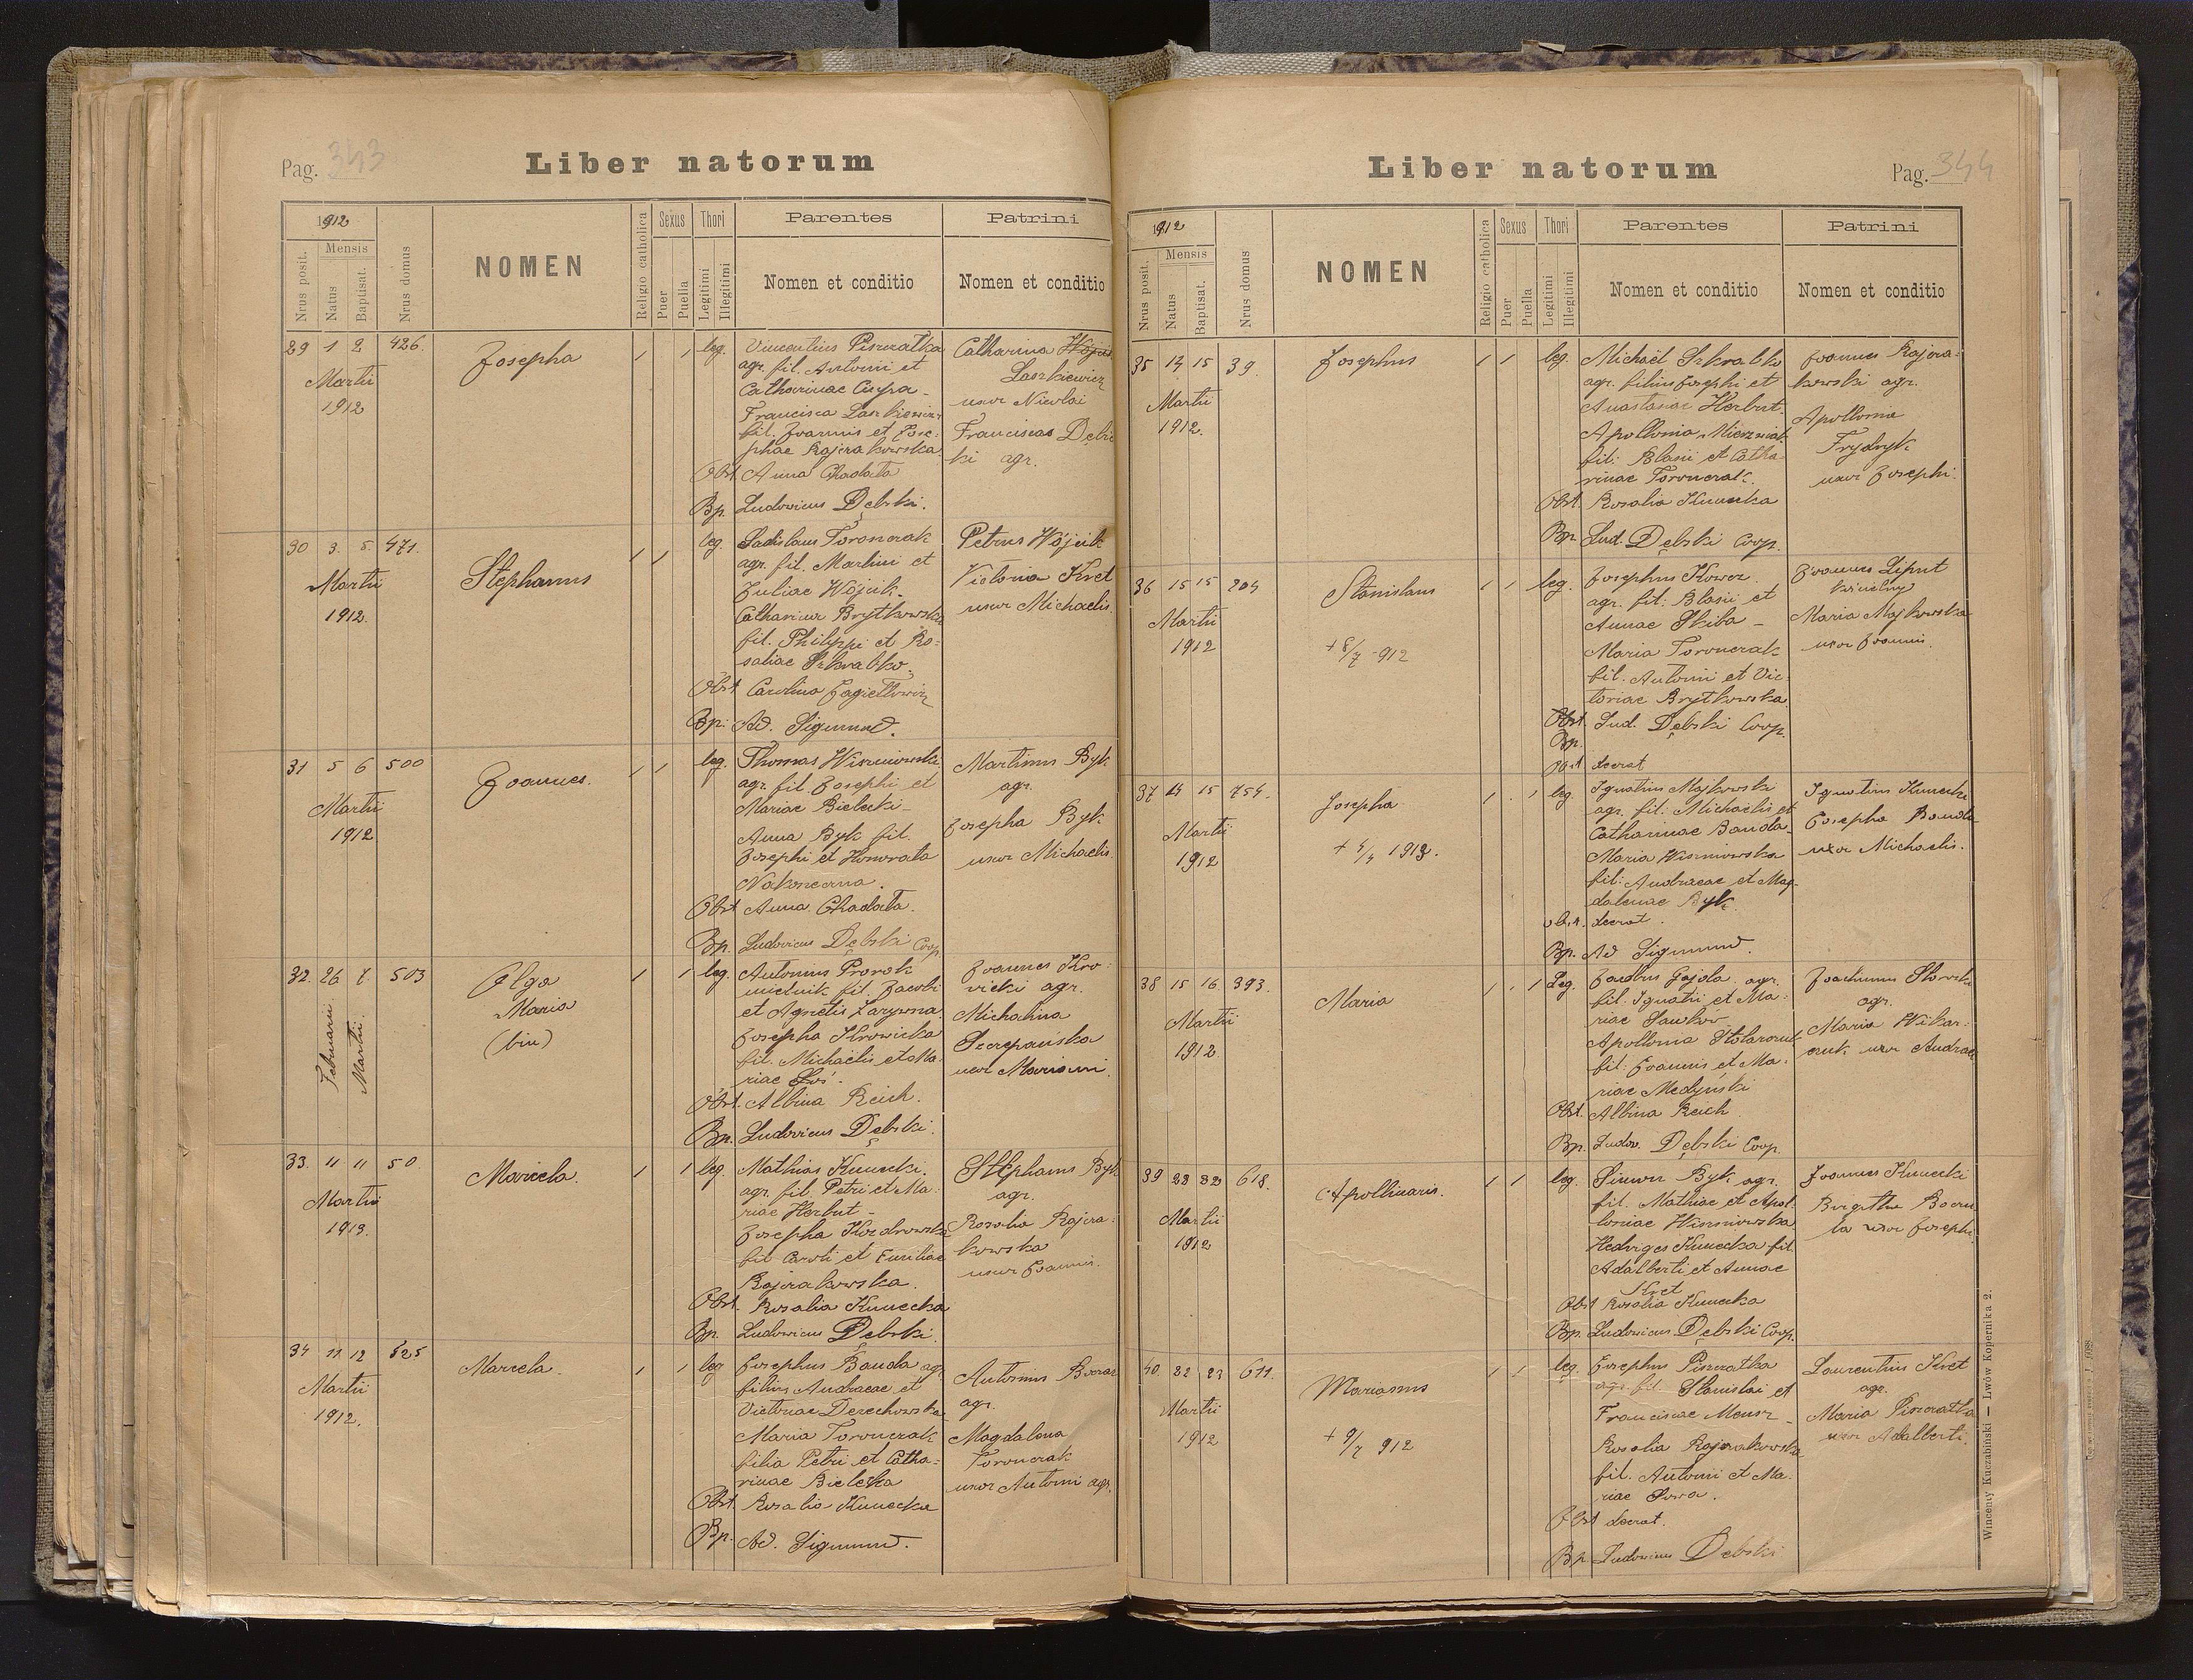 Pag. 343
Liber natorum
1912
Nrus posit.
Mensis
Natus
Baptisat.
Nrus domus
NOMEN
Religio catholica
Sexus
Puer
Puella
Thori
Legitimi
Illegitimi
Parentes
Nomen et conditio
Patrini
Nomen et conditio
29 1 2 426.
Martii
1912
Josepha
1 1 leg.
Vincentius Piszczatka
agr. fil. Antonii et
Catharinae Cupra -
Francisca Laszkiewicz
fil. Joannis et Jose:
phae Rajzrakowska.
Obst. Anna Chadata
Bp. Ludovicus Dębski.
Catharina Wójcik
Laszkiewicz
uxor Nicolai
Franciscus Dębs
ki agr.
30 3. 5. 471.
Martii
1912.
Stephanus
1 1 leg.
Ladislaus Toronczak
agr. fil. Martini et
Juliae Wójcik.
Catharina Brytkowska
fil. Philippi et Ro:
saliae Szkrabko.
Obst. Carolina Jagiełłowicz
Bp: Ad. Sigmund.
Petrus Wójcik
Victoria Kret
uxor Michaelis
31 5 6 500
Martii
1912
Joannes.
1 1 leg.
Thomas Wiszniowski
agr. fil. Josephi et
Mariae Bielecki
Anna Byk fil.
Josephi et Honorata
Nakoneczna.
Obst. Anna Chadata.
Bp. Ludovicus Dębski Coop.
Martinus Byk
agr.
Josepha Byk
uxor Michaelis
32. 26 7. 503
Februarii
Martii
Olga
Maria
(bin)
1 1 leg.
Antonius Prorok
fil. Jacobi
et Agnetis Zarywna.
Josepha Krowicka
fil. Michaelis et Ma:
riae Łoś.
Obst. Albina Reich.
Bp. Ludovicus Dębski.
Joannes Kro:
vicki agr.
Michalina
Szczepańska
uxor Mariani
33. 11 11 50
Martii
1913.
Marcela.
1 1 leg.
Mathias Kunecki.
agr. fil. Petri et Ma:
riae Herbut -
Josepha Kozdrowska
fil. Caroli et Emiliae
Rajzrakowska.
Obst. Rosalia Kunecka
Bp. Ludovicus Dębski.
Stephanus Byk
agr.
Rosalia Rajzra:
kowska
uxor Joannis.
34 11 12 525
Martii
1912.
Marcela.
1 1 leg
Josephus Banda agr.
filius Andraeae et
Victoriae Derechowska
Maria Toronczak
filia Petri et Catha:
rinae Bielecka
Obst. Rosalia Kunecka
Bp. Ad. Sigmund.
Antonius
agr.
Magdalena
Toronczak
uxor Antoni agr.
Liber natorum
Pag. 344
1912
Nrus posit.
Mensis
Natus
Baptisat.
Nrus domus
NOMEN
Religio catholica
Sexus
Puer
Puella
Thori
Legitimi
Illegitimi
Parentes
Nomen et conditio
Patrini
Nomen et conditio
35 14 15 39.
Martii
1912.
Josephus
1 1 leg.
Michaël Szkrabko
agr. filius Josephi et
Anastasiae Herbut.
Apollonia Mierzwiak
fil: Blasii et Catha
rinae Toronczak.
Obst. Rosalia Kunecka
Bp. Lud. Dębski Coop.
Joannes Rajzra:
kowski agr.
Apollonia
Frydryk
uxor Josephi.
36 15 15 204
Martii
1912
Stanislaus
+ 8/7 -912
1 1 leg.
Josephus Kowcz.
agr. fil: Blasii et
Annae Skiba -
Maria Toronczak
fil. Antonii et Vic:
toriae Brytkowska
Obst. Lud. Dębski Coop.
Bp.
Obst deerat
Joannes Liput
kścielny
Maria Majkowska
uxor Joannis.
37 14 15 754.
Martii
1912
Josepha
+ 4/4 1913.
1 1 leg
Ignatius Majkowski
agr. fil: Michaelis et
Catharinae Banda
Maria Wiszniowska
fil: Andraeae et Mag-
dalenae Byk
obst. deerat.
Bp. Ad Sigmund.
Ignatius Kunecki
Josepha Banda
uxor Michaelis.
38 15 16. 393.
Martii
1912.
Maria
1 1 Leg.
Jacobus Gajola agr.
fil. Ignatii et Ma:
riae Sawków
Apollonia Stolarczuk
fil: Joannis et Ma:
riae Medyński
Obst. Albina Reich
Bp. Ludov. Dębski Coop.
Joachimus
agr.
Maria Wikar:
czuk uxor Andraeae
39 23 23 618.
Martii
1912
Apollinaris.
1 1 leg.
Simon Byk agr.
fil. Mathiae et Apol
loniae Wiszniowska
Hedviges Kunecka fil.
Adalberti et Annae
Kret
Obst Rosalia Kunecka
Bp. Ludovicus Dębski Coop.
Joannes Kunecki
Brigitha
la uxor Josephi.
40. 22 23 611.
Martii
1912
Marianus
+ 9/7 912
1 1 leg.
Josephus Piszczatka
agr. fil. Stanislai et
Franciscae Mensz -
Rosalia Rajzrakowska
fil. Antonii et Ma:
riae Sowa.
Obst deerat.
Bp. Ludovicus Dębski
Laurentius Kret
agr.
Maria Piszczatka
uxor Adalberti.
Wincenty Kuczabiński — Lwów Kopernika 2.